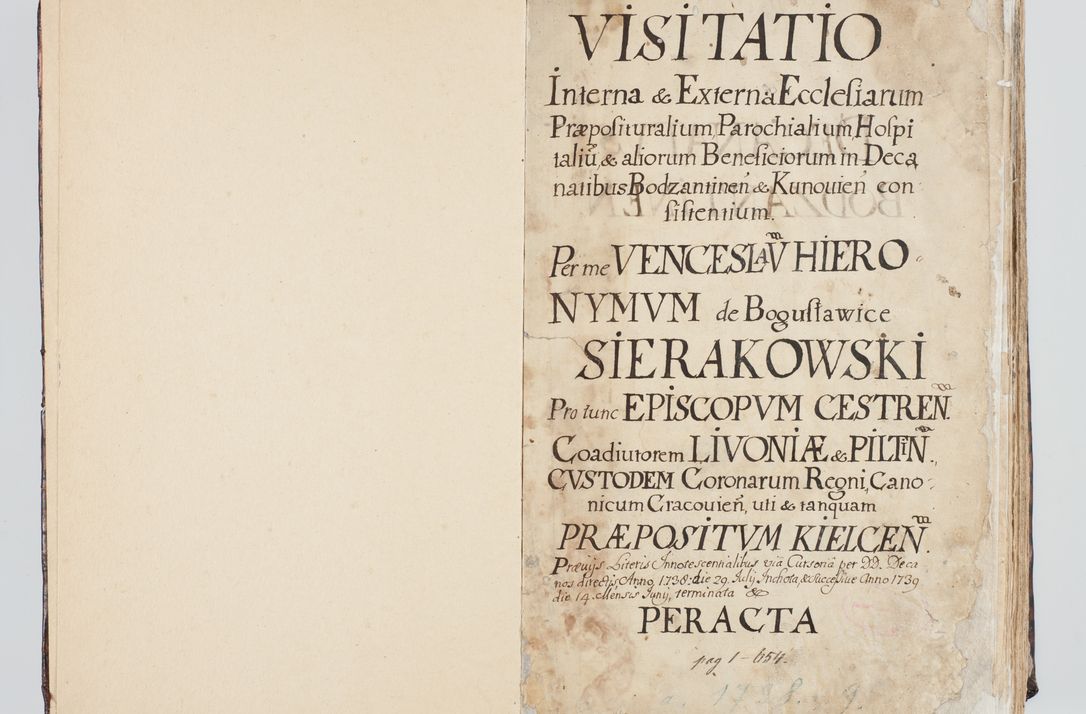 VISITATIO
Interna & Externa Ecclesiarum
Præposituralium, Parochialium, Hospi
taliū, & aliorum Beneficiorum in Deca
natibus Bodzantineñ & Kunovieñ con
sistentium.
Per me VENCESLAV̄ HIERO
NYMVM de Bogusławice
SIERAKOWSKI
Pro tunc EPISCOPVM CESTREN̄.
Coadiutorem LIVONIÆ & PILTIN̄.,
CVSTODEM Coronarum Regni, Cano
nicum Cracovieñ, uti & tanquam
PRÆPOSITVM KIELCEN̄.
Prævijs Literis Innotescentialibus via Cursoriâ per DD. Deca
nos directis, Anno 1738: die 29. Julij Inchota, & Successive Anno 1739
die 14. Mensis Junij, terminata &
PERACTA
pag 1 - 654.
a. 1738.